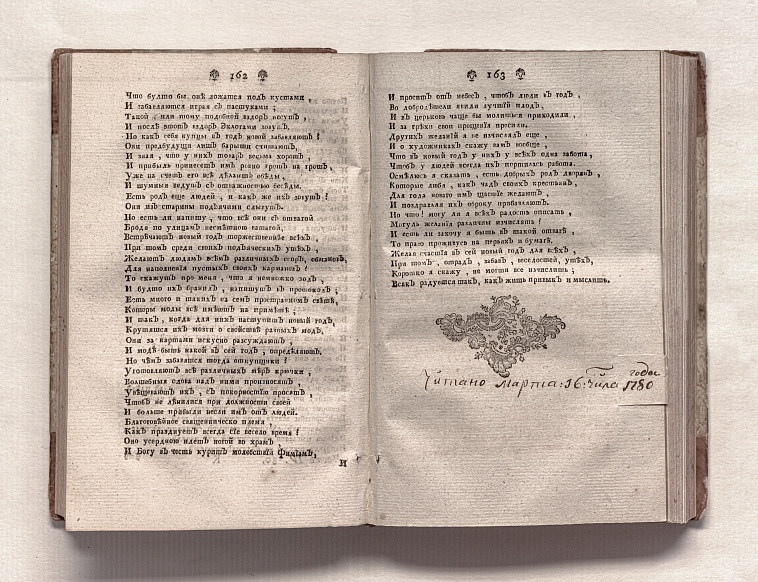 162
Что будто бы онѣ ложатся подъ кустами,
И забавляются играя съ пастухами;
Такой, или тому подобной вздоръ несутъ,
И послѣ етотъ вздоръ Эклогами зовутъ.
Но какъ себя купцы въ годъ новой забавляютъ?
Они предбудущи лишь барыши считаютъ,
И зная, что у нихъ товаръ весьма хорошъ,
И прибыль принесетъ имъ равно грошъ на грошъ,
Уже на счетъ его всѣ дѣлаютъ обѣды,
И шумныя ведутъ съ отважностью бесѣды.
Есть родъ еще людей, и какъ же ихъ зовутъ?
Они изъ старины подъячими слывутъ.
Но есть ли напишу, что всѣ они съ отвагой
Бродя по улицамъ несмѣтною ватагой,
Встрѣчаютъ новый годъ торжественнѣе всѣхъ,
При томъ среди своихъ подъяческихъ утѣхъ,
Желаютъ людямъ всѣмъ различныхъ споръ, обмановъ,
Для наполненія пустыхъ своихъ кармановъ?
То скажутъ про меня, что я немножко золъ,
И будто ихъ бранилъ, напишутъ въ протоколъ;
Есть много и такихъ на семъ пространномъ свѣтѣ,
Которы моды всѣ имѣютъ на примѣтѣ;
И такъ, когда для нихъ наступитъ новый годъ,
Крутящся ихъ мозги о свойствѣ разныхъ модъ.
Они за картами искусно разсуждаютъ,
И модѣ быть какой въ сей годъ, опредѣляютъ.
Но чѣмъ забавятся тогда откупщики?
Уготовляютъ всѣ различныхъ мѣръ крючки,
Волшебныя слова надъ ними произносятъ,
Увѣщеваютъ ихъ, съ покорностію просятъ,
Чтобъ не лѣнилися при должности своей
И больше прибыли несли имъ отъ людей.
Благоговѣйное священническо племя,
Какъ празднуетъ всегда сіе весело время?
Оно усердною идетъ ногой во храмъ,
И Богу въ честь куритъ молебствій ѳиміамъ,
И
163
И проситъ отъ небесъ, чтобъ люди въ годъ,
Во добродѣтели явили лучшій плодъ,
И въ церьковь чаще бы молиться приходили,
И за грѣхи свои прощенія просили.
Другихъ желаній я не изчислялъ еще,
И о художникахъ скажу вамъ вообще,
Что въ новый годъ у нихъ у всѣхъ одна забота,
Чтобъ у людей когда ихъ портилась работа.
Осмѣлюсь я сказать, есть добрыхъ родъ дворянъ,
Которые любя, какъ чадъ своихъ крестьянъ,
Для года новаго имъ щастіе желаютъ,
И поздравляя ихъ оброку прибавляютъ.
Но что! могу ли я всѣхъ радость описать,
Могулъ желанія различны изчислять?
И есть ли захочу я быть въ такой отвагѣ,
То право проживусь на перьяхъ и бумагѣ.
Желая счастія въ сей новый годъ для всѣхъ,
При томъ, отрадъ, забавъ, веселостей, утѣхъ,
Коротко я скажу, не могши все изчислить;
Всякъ радуется такъ, какъ жить привыкъ и мыслить.
Читано Марта: 16: Числа 1780 годы